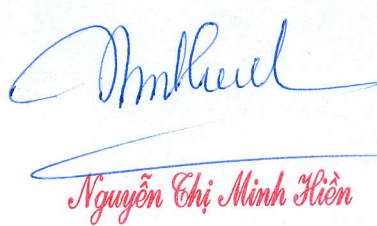 Nguyễn Thị Minh Hiền